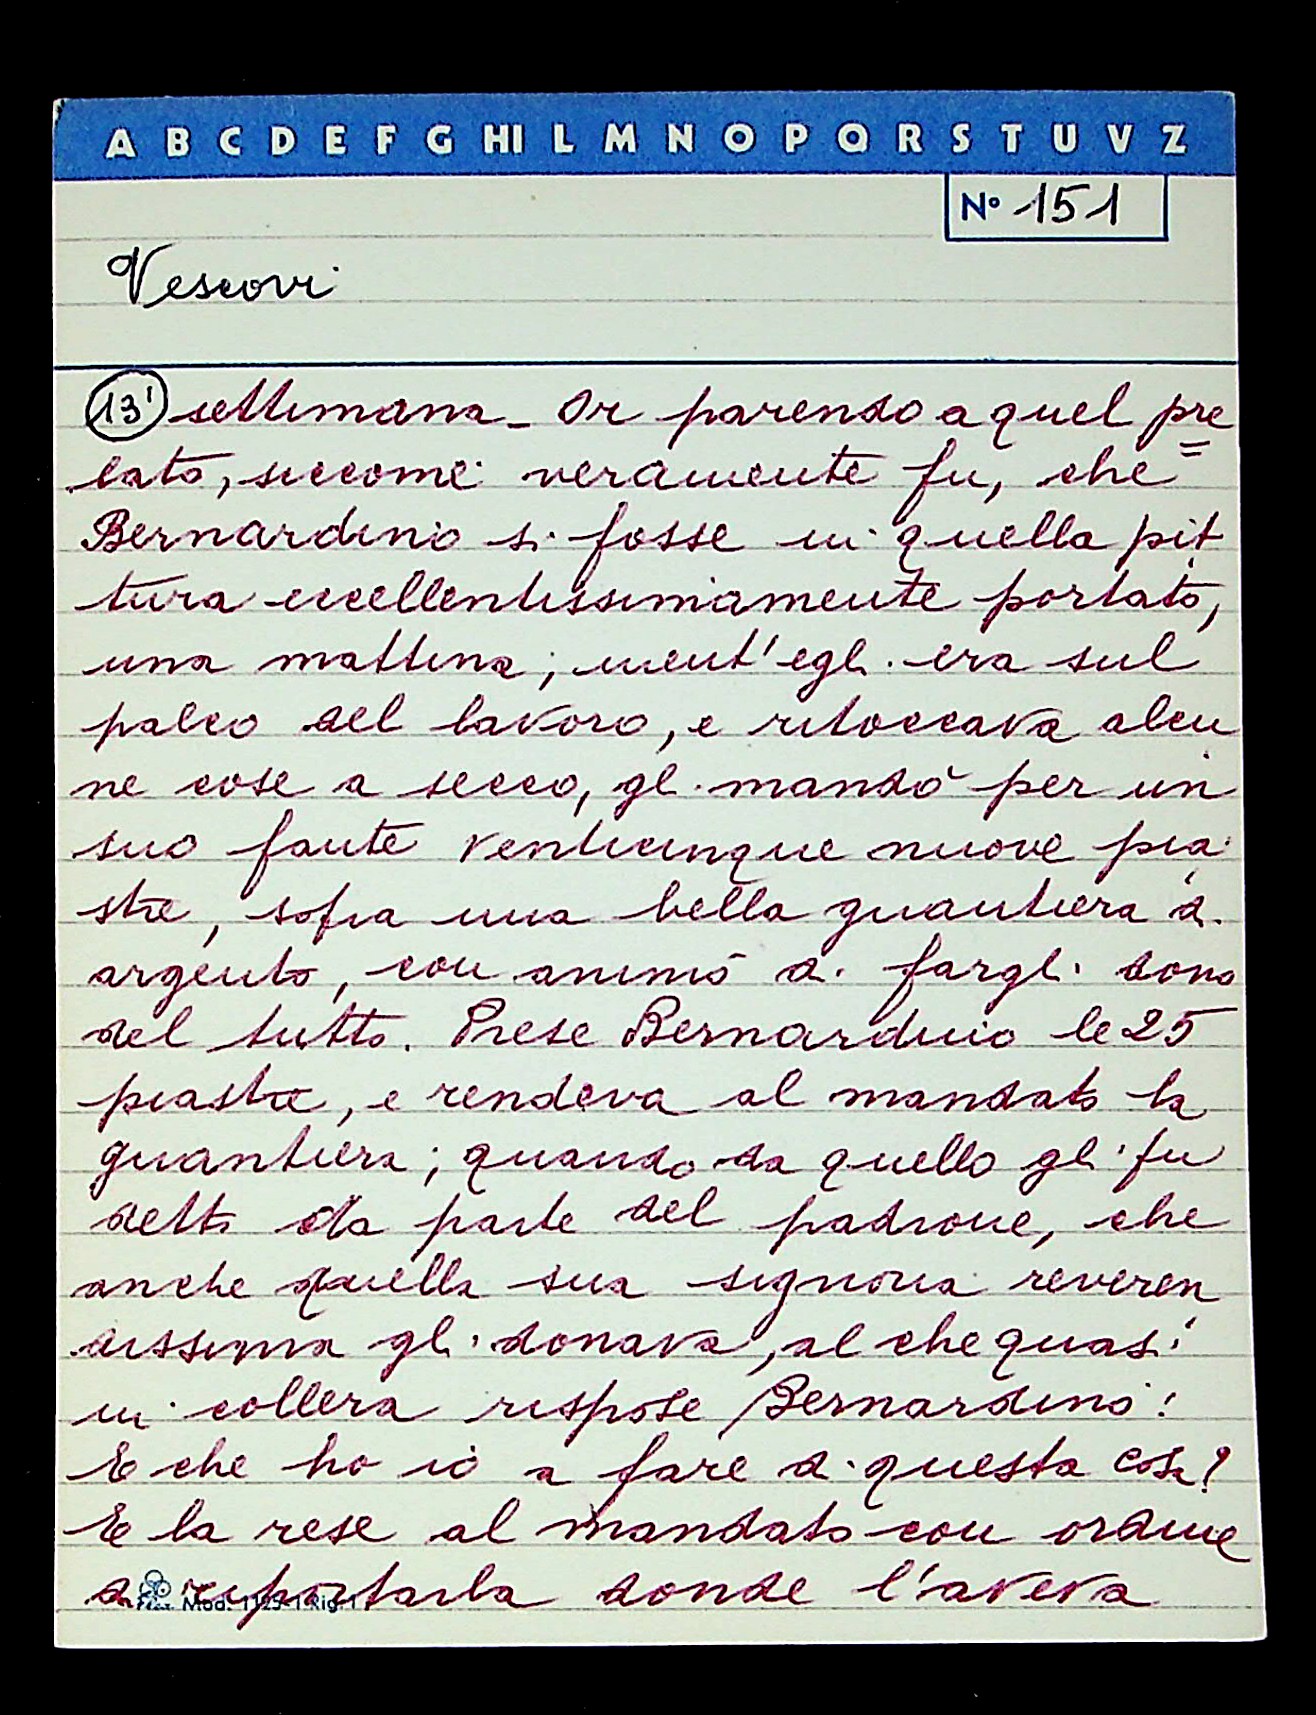 A B C D E F G HI L M N O P Q R S T U V Z
Nº 151
Vescovi
13' settimana - Or parendo a quel pre=
lato, siccome veramente fu, che
Bernardino si fosse in quella pit
tura eccellentissimamente portato,
una mattina, ment' egli era sul
palco del lavoro, e ritoccava alcu
ne cose a secco, gli mandò per un
suo fante venticinque nuove pia
stre, sopra una bella guantiera d.
argento, con animo di fargli dono
del tutto. Prese Bernardino le 25
piastre, e rendeva al mandato la
guantiera; quando da quello gli fu
detto da parte del padrone, che
anche quella sua signoria reveren
dissima gli donava, al che quasi
in collera rispose Bernardino:
E che ho io a fare di questa cosa?
E la rese al mandato con ordine
di riportarla donde l'aveva
Mod. 1125-1 Rig. 1